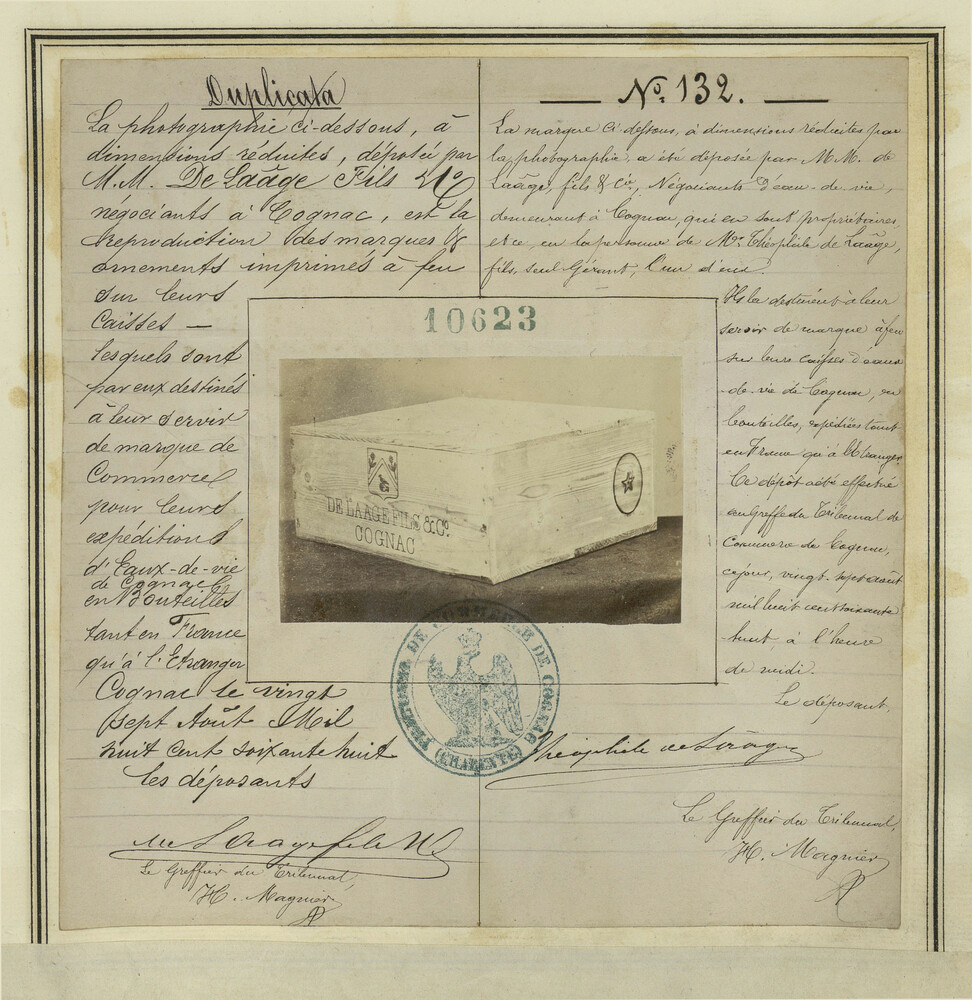 Duplicata
La photographie ci-dessous, à
dimensions réduites, déposée par
M.M. De Laâge Fils & Co
négociants à Cognac, est la
Reproduction des marques &
ornements imprimés à feu
sur leurs
Caisses —
lesquels sont
par eux destinés
à leur servir
de marque de
Commerce
pour leurs
expéditions
d'Eaux-de-vie
de Cognac
en Bouteilles
tant en France
qu'à l'Etranger
Cognac le vingt
sept Août Mil
huit cent soixante huit
les déposants
de Laage fils & Co
Le Greffier du Tribunal,
H. Magnier
— No. 132. —
La marque ci-dessous, à dimensions réduites par
la photographie, a été déposée par M.M. de
Laâge, fils & Cie, Négociants d'eau-de-vie,
demeurant à Cognac, qui en sont propriétaires,
et ce, en la personne de Mr. Théophile de Laâge,
fils, seul Gérant, l'un d'eux.
Ils la destinent à leur
servir de marque à feu
sur leurs caisses d'eaux-
de-vie de Cognac, en
bouteilles, expédiées tant
en France qu'à l'Etranger.
Ce dépôt a été effectué
au Greffe du Tribunal de
Commerce de Cognac,
ce jour, vingt-sept août
mil huit cent soixante
huit, à l'heure
de midi.
Le déposant,
Théophile de Laâge
Le Greffier du Tribunal,
H. Magnier
10623
DE LAAGE FILS & Co.
COGNAC
TRIBUNAL DE COMMERCE DE COGNAC
(CHARENTE)